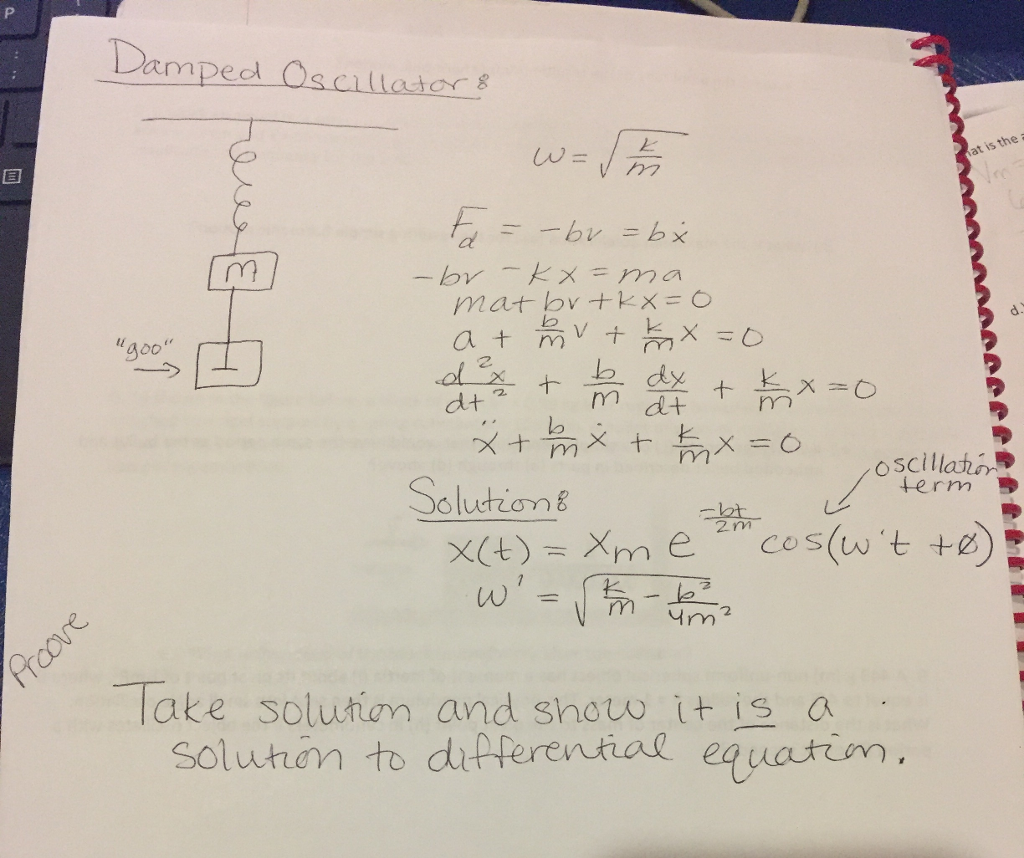 Damped Oscillator:
ω = √(k/m)
F_d = -bv = bẋ
-bv - kx = ma
m
ma + bv + kx = 0
a + b/m v + k/m x = 0
"goo"
d²x/dt² + b/m dx/dt + k/m x = 0
ẍ + b/m ẋ + k/m x = 0
oscillation
term
Solution:
x(t) = x_m e^(-bt/2m) cos(ω't + ø)
ω' = √(k/m - b²/4m²)
Proove
Take solution and show it is a
solution to differential equation.
P
at is the
d.